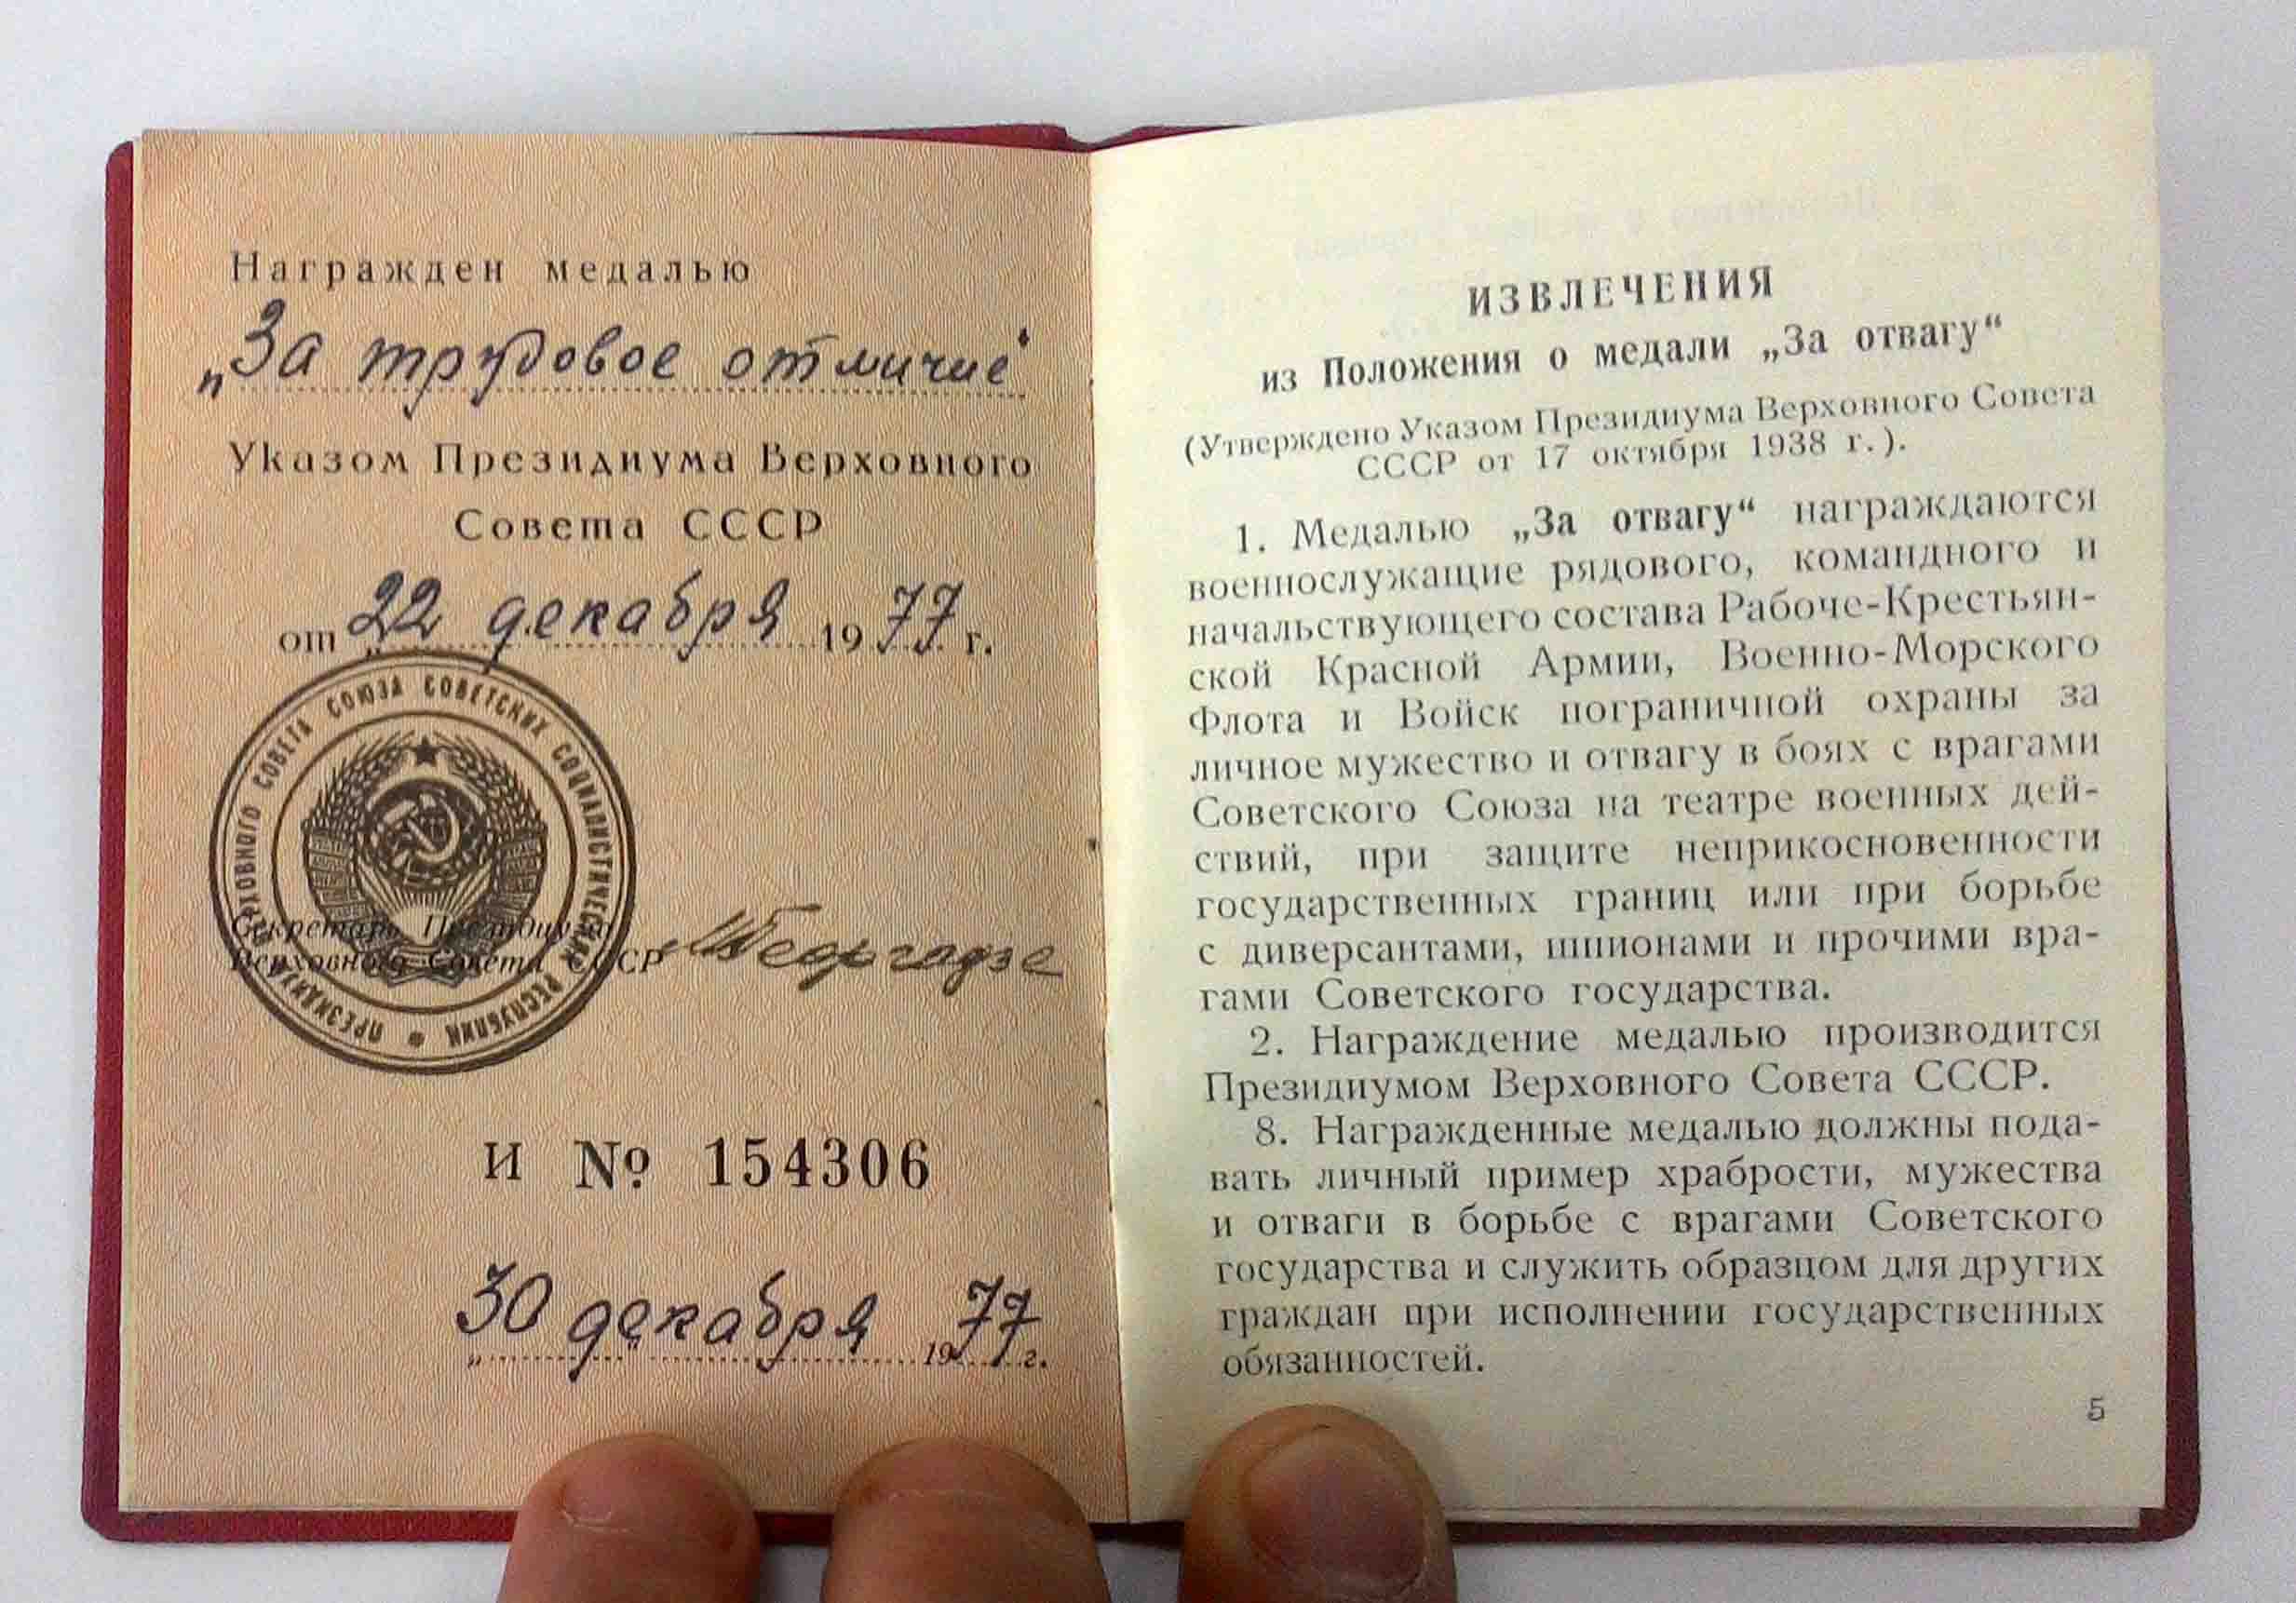 Награжден медалью
„За трудовое отличие“
Указом Президиума Верховного
Совета СССР
от 22 декабря 1977 г.
ПРЕЗИДИУМ ВЕРХОВНОГО СОВЕТА СОЮЗА СОВЕТСКИХ СОЦИАЛИСТИЧЕСКИХ РЕСПУБЛИК
Секретарь Президиума
Верховного Совета СССР МГеоргадзе
И № 154306
30 декабря 1977 г.
ИЗВЛЕЧЕНИЯ
из Положения о медали „За отвагу“
(Утверждено Указом Президиума Верховного Совета
СССР от 17 октября 1938 г.).
1. Медалью „За отвагу“ награждаются
военнослужащие рядового, командного и
начальствующего состава Рабоче-Крестьян-
ской Красной Армии, Военно-Морского
Флота и Войск пограничной охраны за
личное мужество и отвагу в боях с врагами
Советского Союза на театре военных дей-
ствий, при защите неприкосновенности
государственных границ или при борьбе
с диверсантами, шпионами и прочими вра-
гами Советского государства.
2. Награждение медалью производится
Президиумом Верховного Совета СССР.
8. Награжденные медалью должны пода-
вать личный пример храбрости, мужества
и отваги в борьбе с врагами Советского
государства и служить образцом для других
граждан при исполнении государственных
обязанностей.
5